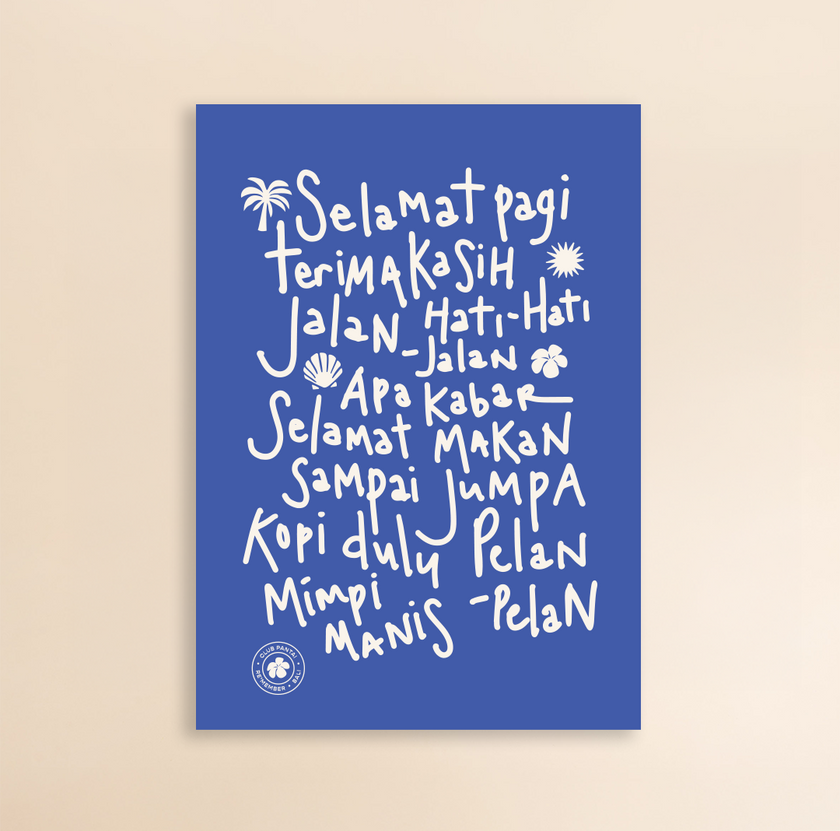 Selamat pagi
teriMAKaSiH
JalaN Hati-Hati
-JalaN
Apa KabaR
Selamat MAKaN
SaMpai JuMpA
Kopi dulu PelaN
Mimpi -PelaN
MANiS
CLUB PANTAI
RE'MEMBER • BALI